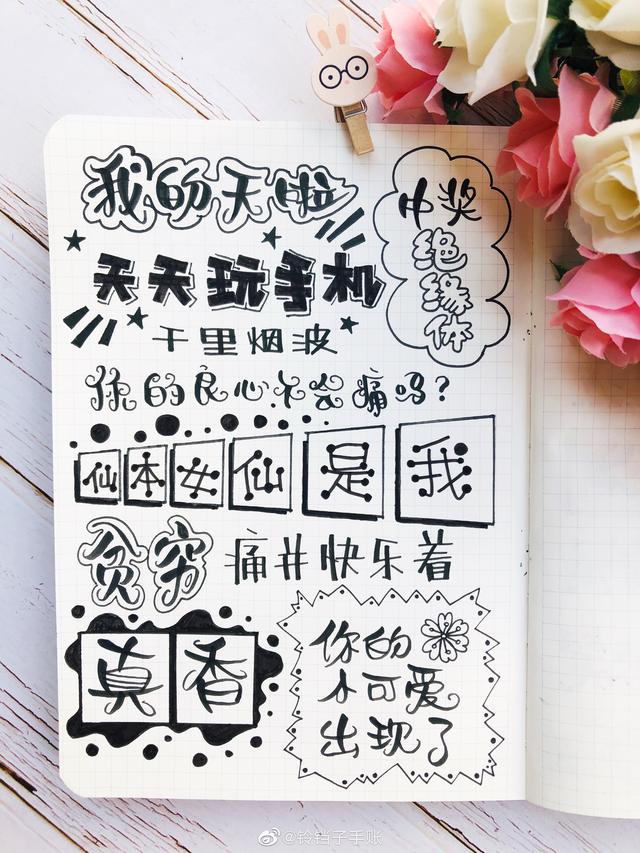 我的天啦
中奖
绝缘体
天天玩手机
千里烟波
你的良心不会痛吗?
仙本女仙是我
贫穷
痛并快乐着
真香
你的
小可爱
出现了
@铃铛子手账